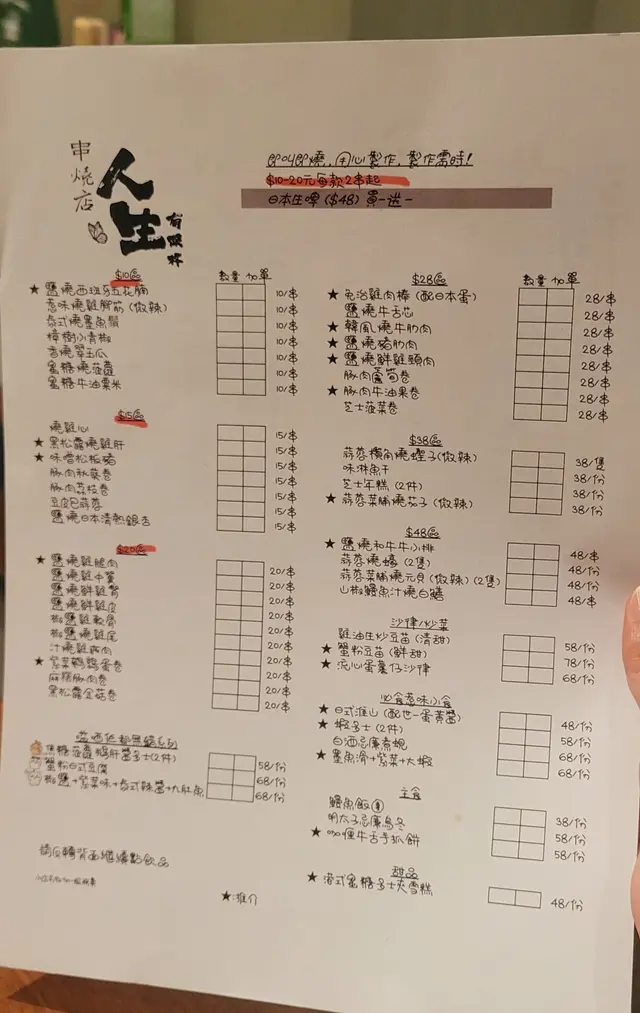 串燒店
人生
有限杯
即叫即燒,用心製作,製作需時!
$10-20元每款2串起
日本生啤 ($48) 買一送一
$10區
數量 加單
★ 鹽燒西班牙五花腩 10/串
惹味燒雞脾筋 (微辣) 10/串
泰式燒墨魚鬚 10/串
樟樹小青椒 10/串
香燒翠玉瓜 10/串
蜜糖燒菠蘿 10/串
蜜糖牛油粟米 10/串
$15區
燒雞心 15/串
★ 黑松露燒雞肝 15/串
★ 味噌松板豬 15/串
豚肉秋葵卷 15/串
豚肉荔枝卷 15/串
豆皮巴蒜蓉 15/串
鹽燒日本清熱銀杏 15/串
$20區
★ 鹽燒雞腿肉 20/串
鹽燒雞中翼 20/串
鹽燒鮮雞腎 20/串
鹽燒鮮雞皮 20/串
椒鹽雞軟骨 20/串
椒鹽燒雞尾 20/串
汁燒雞肉 20/串
★ 紫菜鵪鶉蛋卷 20/串
豚肉卷 20/串
黑松露金菇卷 20/串
焦糖菠蘿鵝肝醬多士(2件) 58/份
蟹粉日式豆腐 68/份
椒鹽+紫菜味+泰式辣醬+九肚魚 68/份
請反轉背面繼續點飲品
★:推介
$28區
數量 加單
★ 免治雞肉棒 (配日本蛋) 28/串
鹽燒牛舌芯 28/串
★ 韓風燒牛肋肉 28/串
★ 鹽燒豬肋肉 28/串
★ 鹽燒鮮雞頸肉 28/串
豚肉蘆筍卷 28/串
★ 豚肉牛油果卷 28/串
芝士菠菜卷 28/串
$38區
蒜蓉欖角燒蟶子(微辣) 38/隻
味淋魚干 38/份
芝士年糕 (2件) 38/份
★ 蒜蓉菜脯燒茄子 (微辣) 38/份
$48區
★ 鹽燒和牛牛小排 48/串
蒜蓉燒蠔 (2隻) 48/份
蒜蓉菜脯燒元貝 (微辣) (2隻) 48/份
山椒鰻魚汁燒白鱔 48/串
沙律/炒菜
雞油生炒豆苗 (清甜) 58/份
★ 蟹粉豆苗 (鮮甜) 78/份
★ 流心蛋薯仔沙律 68/份
必食惹味小食
★ 日式淮山 (配世一蛋黃醬) 48/份
★ 蝦多士 (2件) 58/份
白酒忌廉煮蜆 68/份
★ 墨魚滑+紫菜+大蝦 68/份
主食
鰻魚飯 38/份
明太子忌廉烏冬 58/份
★ 咖喱牛舌手抓餅 58/份
甜品
★ 港式蜜糖多士夾雪糕 48/份